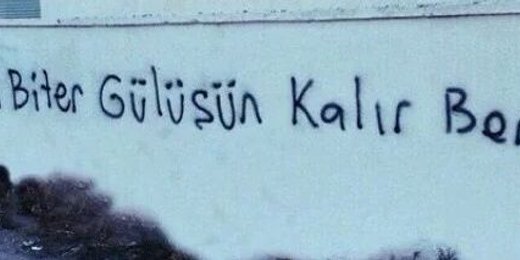 Biter Gülüşün Kalır Be